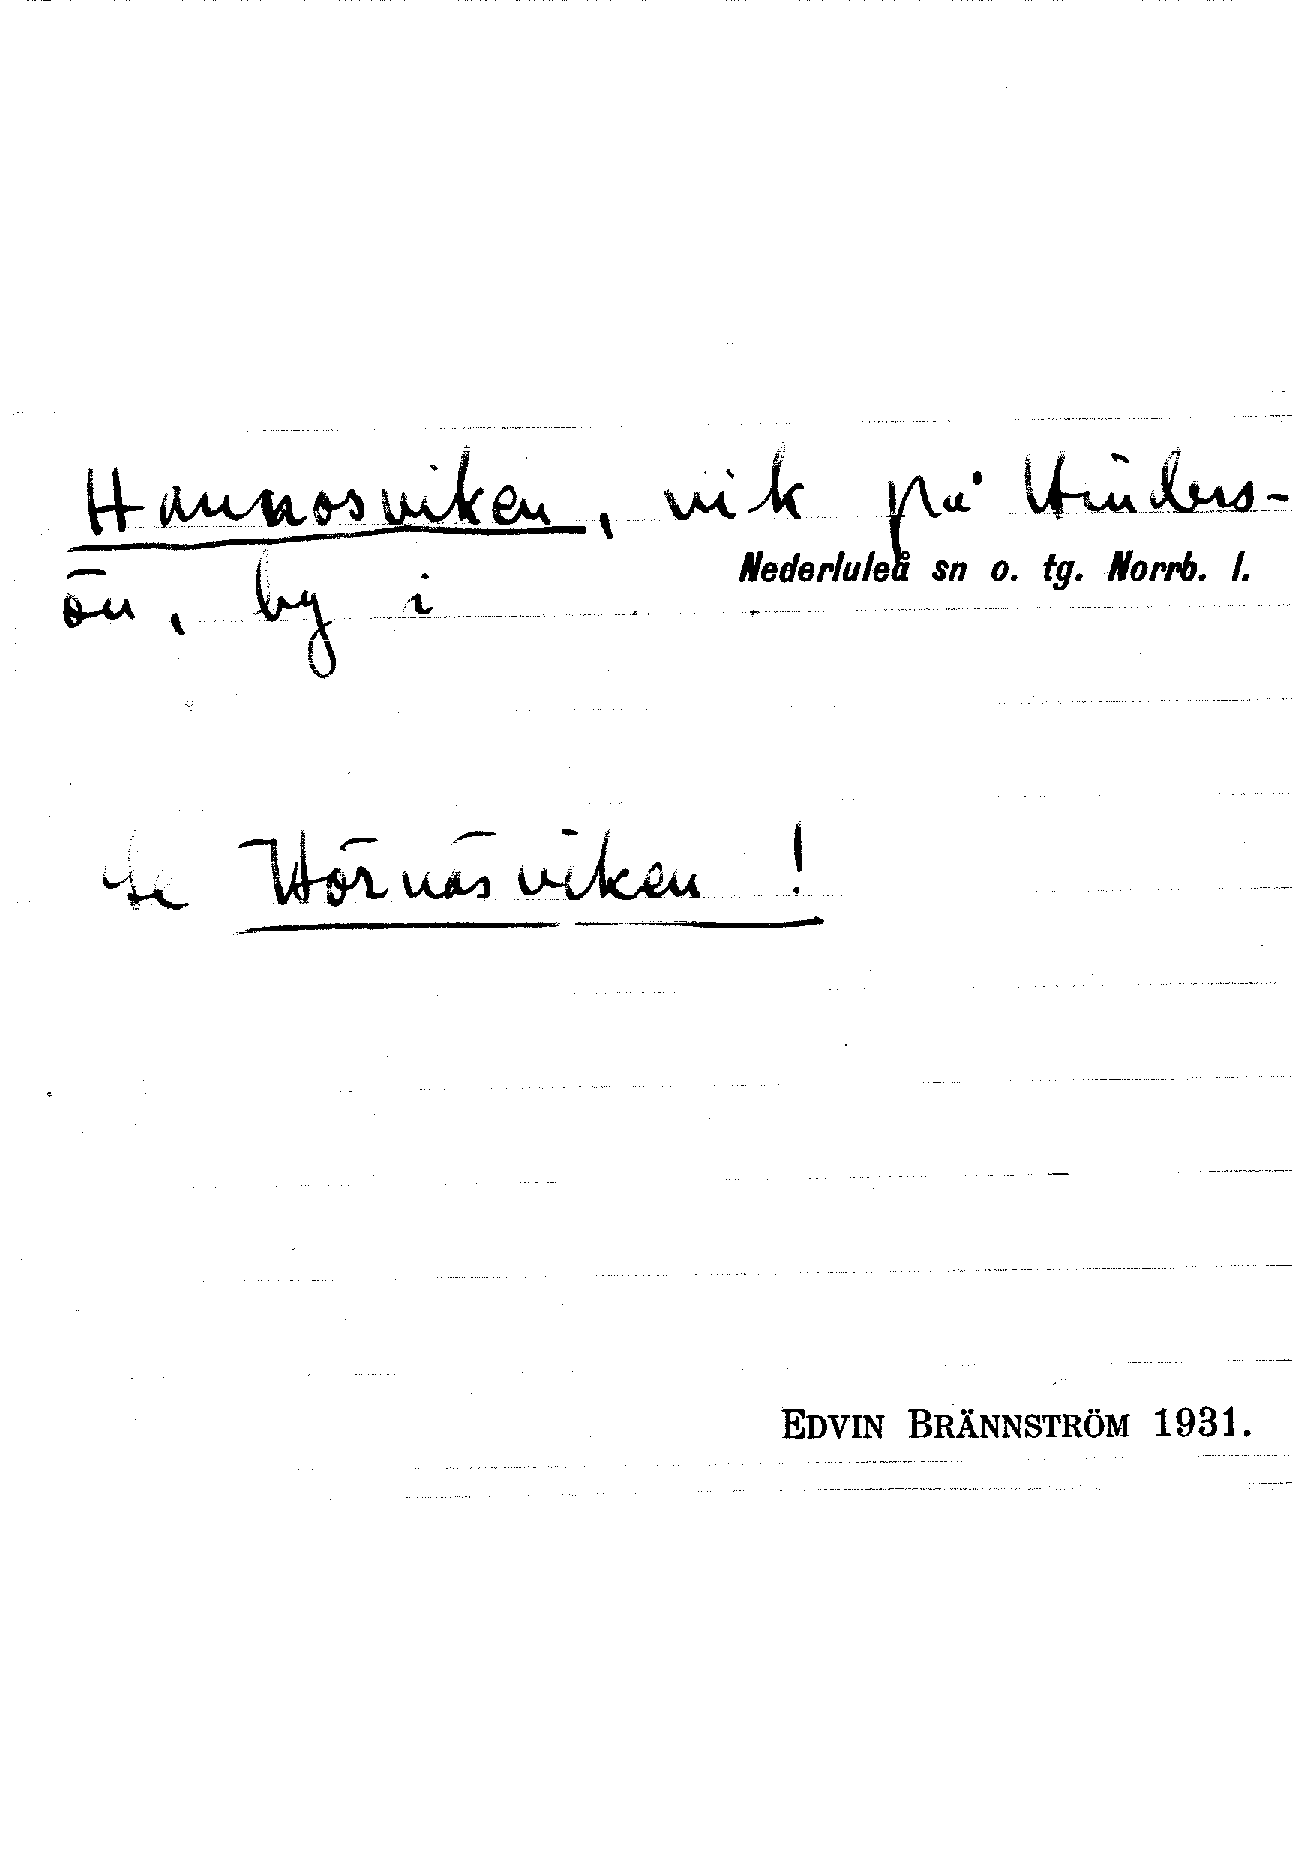 Hannosviken, vik på Hinders-
Nederluleå sn o. tg. Norrb. l.
ön, by i
Se Hörnäsviken!
EDVIN BRÄNNSTRÖM 1931.